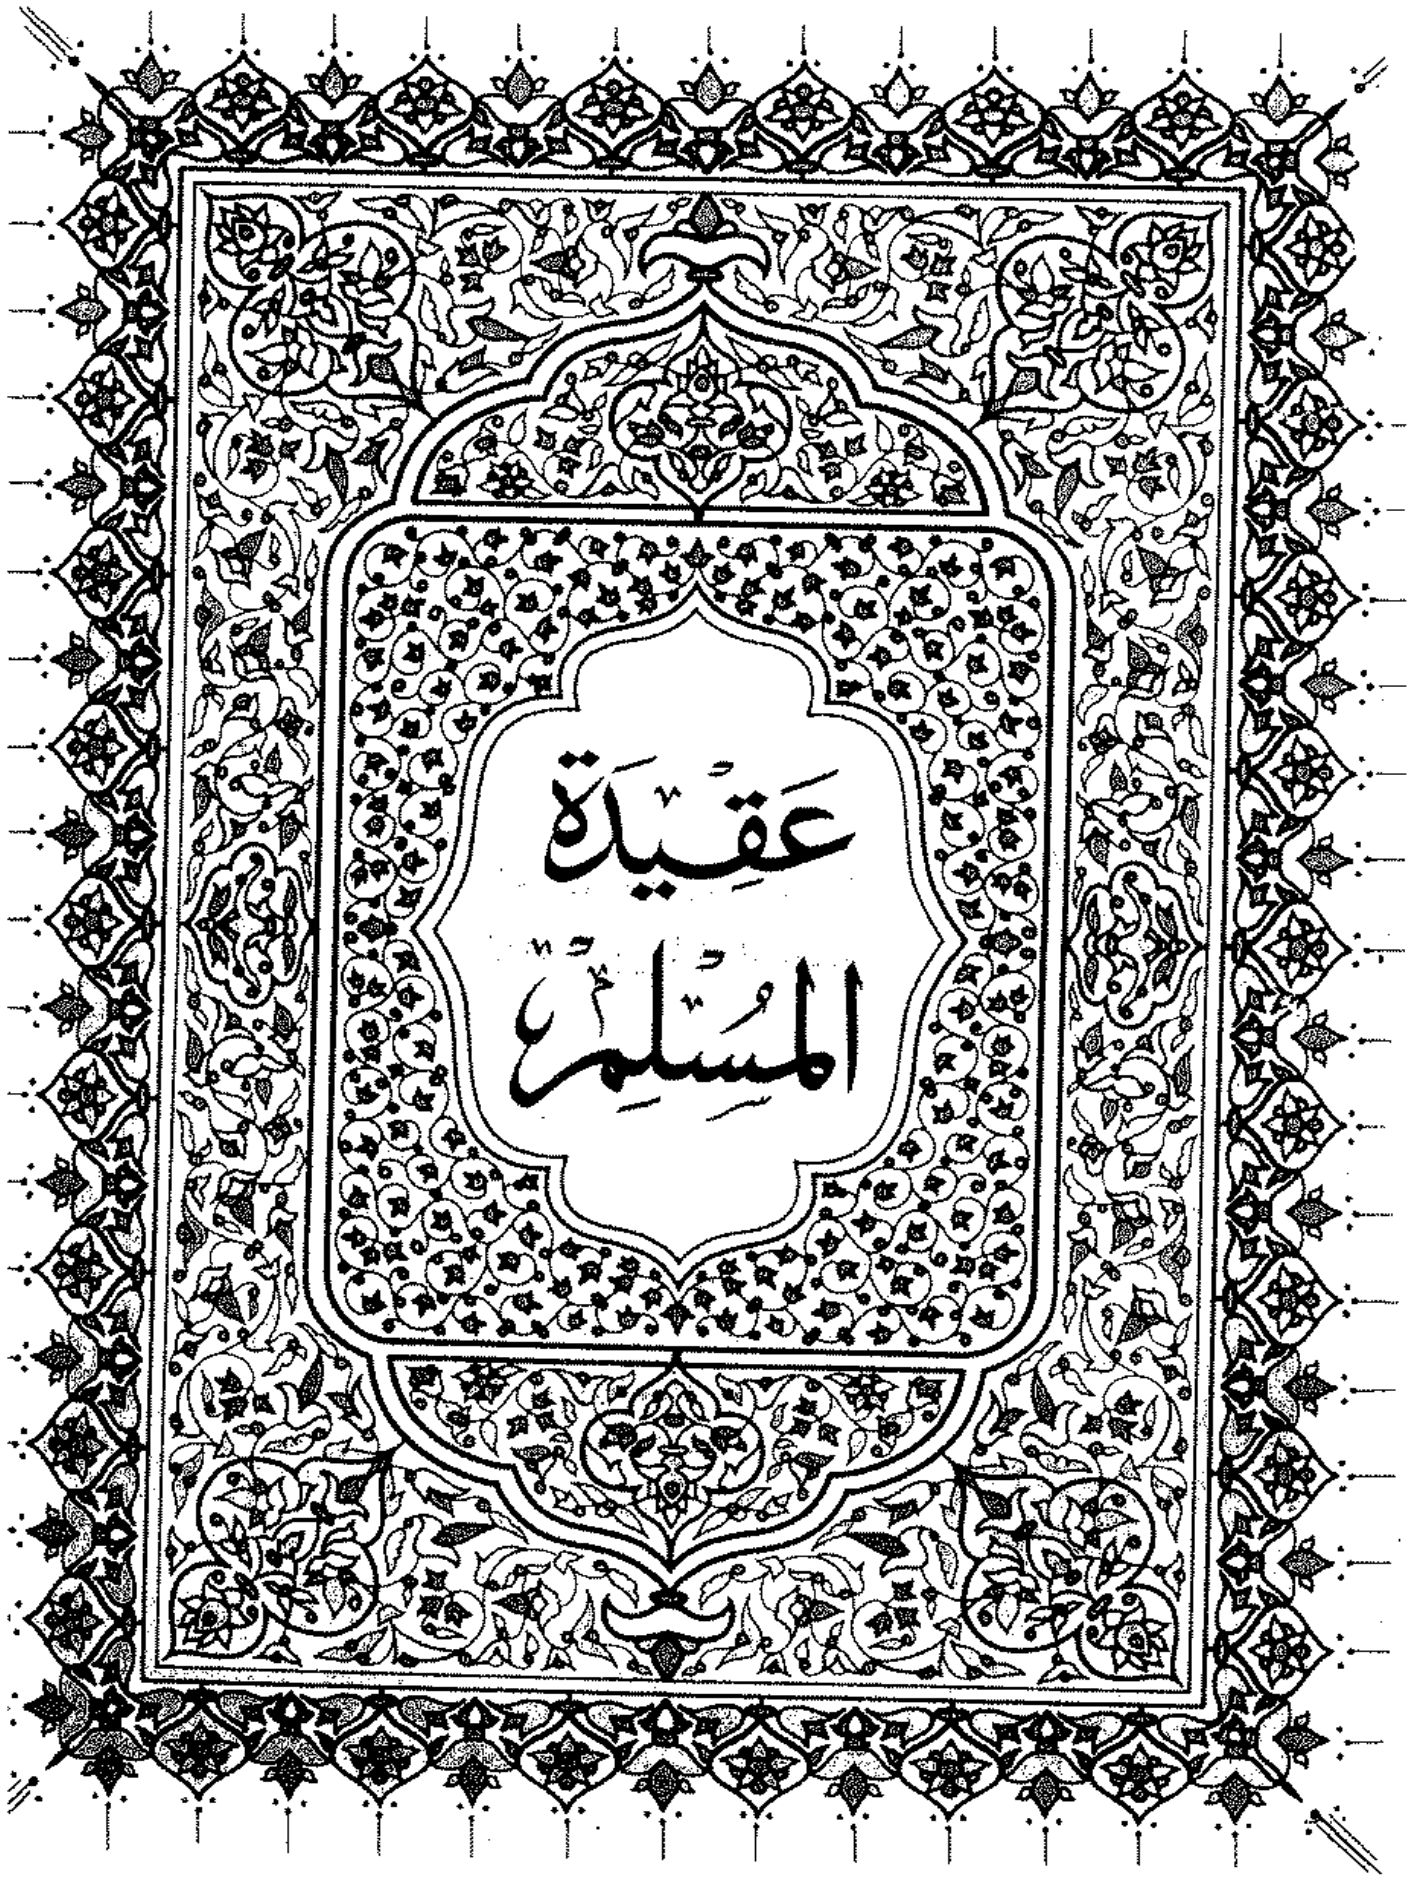 عَقِيدَة
المُسْلِمِ